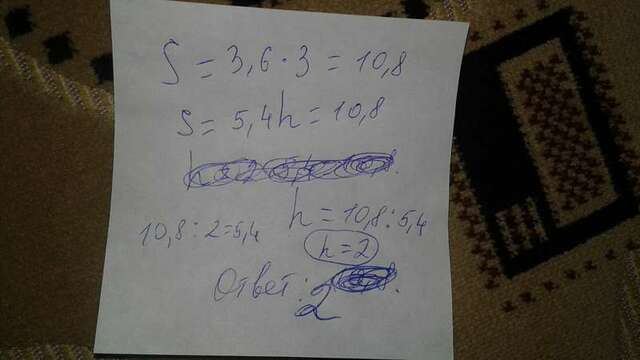 S = 3,6 · 3 = 10,8
S = 5,4h = 10,8
h = 10,8 : 5,4
10,8 : 2 = 5,4
h = 2
Ответ: 2